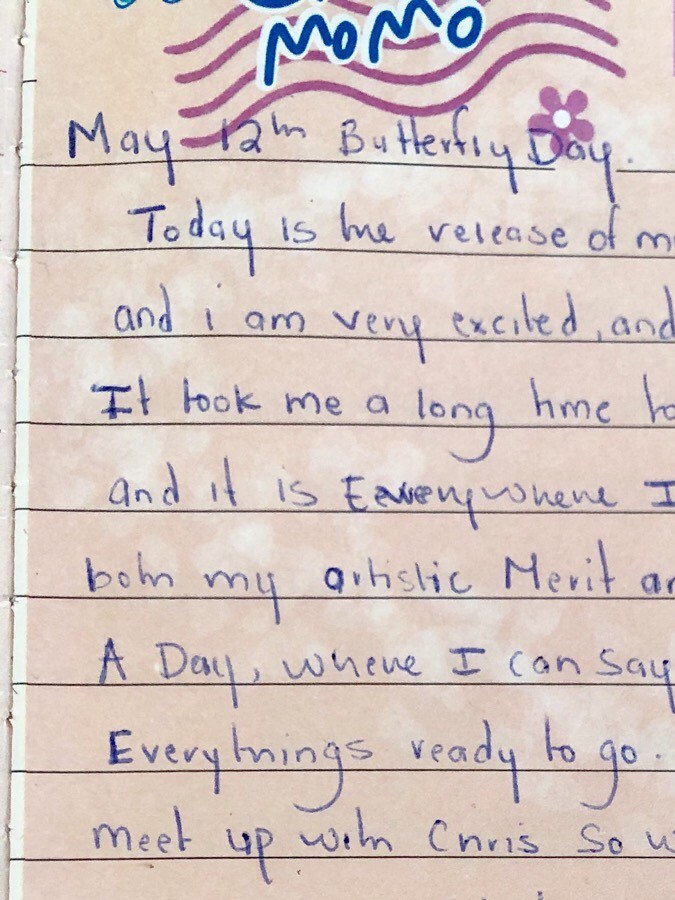 MOMO
May 12th Butterfly Day.
Today is the release of m
and i am very excited, and
It took me a long time to
and it is Everywhere I
both my artistic Merit an
A Day, where I can say
Everythings ready to go.
meet up with Chris So w